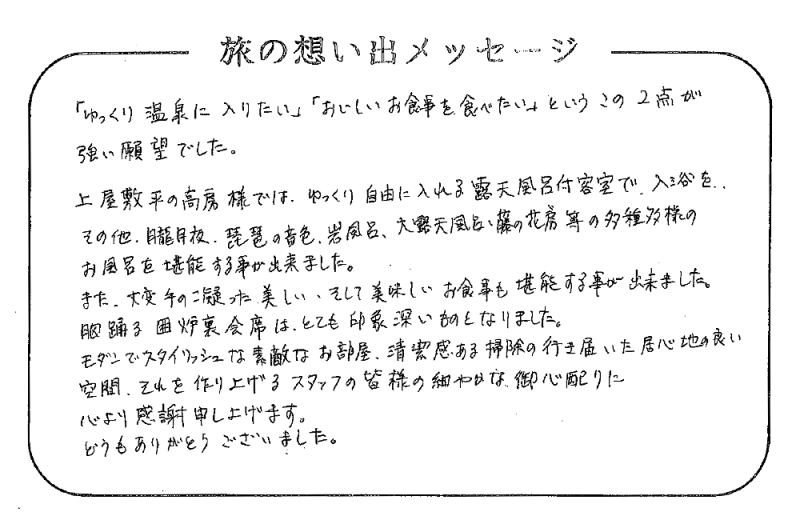 旅の想い出メッセージ
「ゆっくり温泉に入りたい」「おいしいお食事を食べたい」というこの2点が
強い願望でした。
上屋敷平の高房様では、ゆっくり自由に入れる露天風呂付客室で、入浴を、
その他、朧月夜、琵琶の音色、岩風呂、大露天風呂、藤の花房等の多種多様の
お風呂を堪能する事が出来ました。
また、大変手のこ凝った美しい、そして美味しいお食事も堪能する事が出来ました。
胸踊る囲炉裏会席は、とても印象深いものとなりました。
モダンでスタイリッシュな素敵なお部屋、清潔感ある掃除の行き届いた居心地の良い
空間、それを作り上げるスタッフの皆様の細やかな御心配りに
心より感謝申し上げます。
どうもありがとうございました。